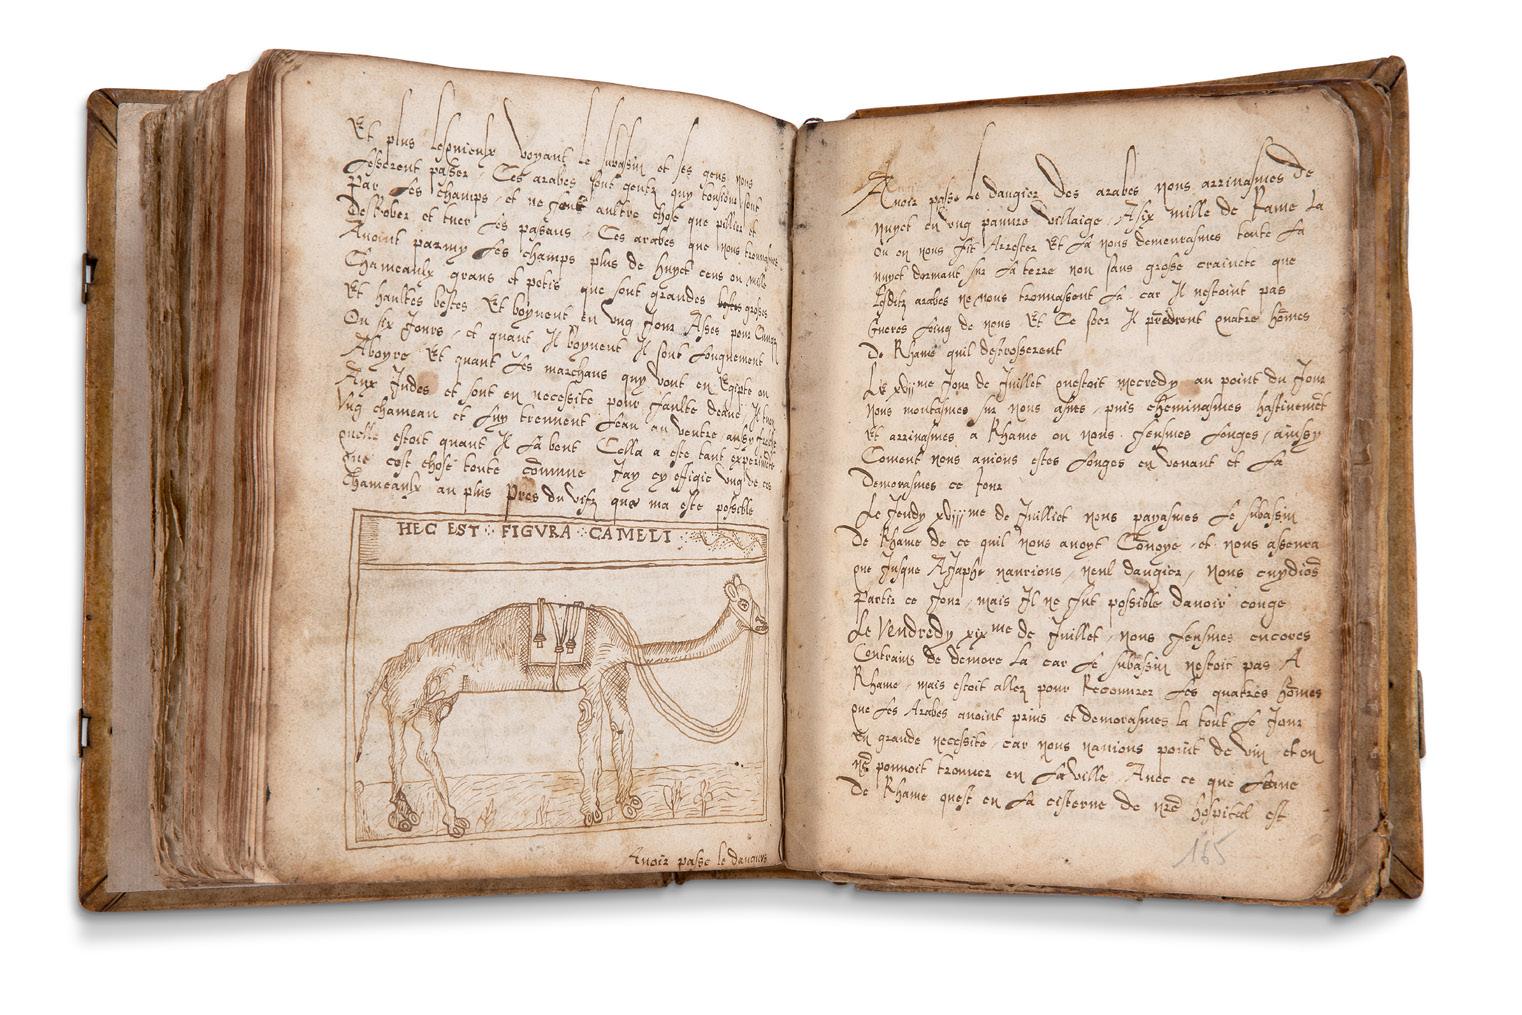 Et plus voyant le subassin et ses gens nous
lesserent passer Ces arabes sont gentz quy tousiours sont
Par les champs et ne font aultre chose que pillier et
Desrober et tuer les passans Ces arabes que nous trouuasmes
Auoint parmy les champs plus de huyct cens ou mille
Chameaulx grans et petis que sont grandes grosses
Et haultes bestes Et boyuent en vng Jour Asses pour Cinq
Ou six Jours et quant Il boyuent Il sont longuement
Aboyre Et quant les marchans quy vont en Egipte ou
Aux Indes et sont en necessite pour faulte deaue Il tuent
Vng chameau et luy treuuent leau au ventre ausy
quelle estoit quant Il la beut Cella a este tant experimete
que cest chose toute comune Jay cy effigie vng de ces
Chameaulx au plus pres du vifz que ma este possible
HEC EST FIGVRA CAMELI
Auoir passe le dangier
Auoir passe le dangier des arabes nous arriuasmes de
nuyct en vng pauure villaige A six mille de Rame La
Ou on nous fit Arrester Et la nous demeurasmes toute la
nuyct dormant sur la terre non sans grosse craincte que
lesditz arabes ne nous trouuassent la car Il nestoint pas
Gueres loing de nous Et Ce soer Il predrent quatre homes
De Rhame quil destrosserent
Le xvijme Jour de Juillet questoit mecredy au point du Jour
Nous montasmes sur nous asnes puis cheminasmes hastiuemet
Et arriuasmes a Rhame ou nous fusmes loges ainsy
Coment nous auions estes loges en venant et la
Demorasmes ce Jour
Le Jeudy xviijme de Juilliet nous payasmes le subassin
De Rhame de ce quil nous auoyt Conuoye et nous asseura
que Jusque A Japhe naurions neul dangier Nous cuydios
Partir ce Jour mais Il ne fut possible dauoir conge
Le Vendredy xixme de Juillet nous fusmes encores
Contrains de demore la car le subassin nestoit pas A
Rhame mais estoit allez pour Recouurer les quatres homes
que les Arabes auoint prins et demorasmes la tout le Jour
En grande necessite car nous nauions point de vin et on
ne pouuoit trouuer en la ville Auec ce que leaue
De Rhame quest en la cisterne de nre hospital est
165